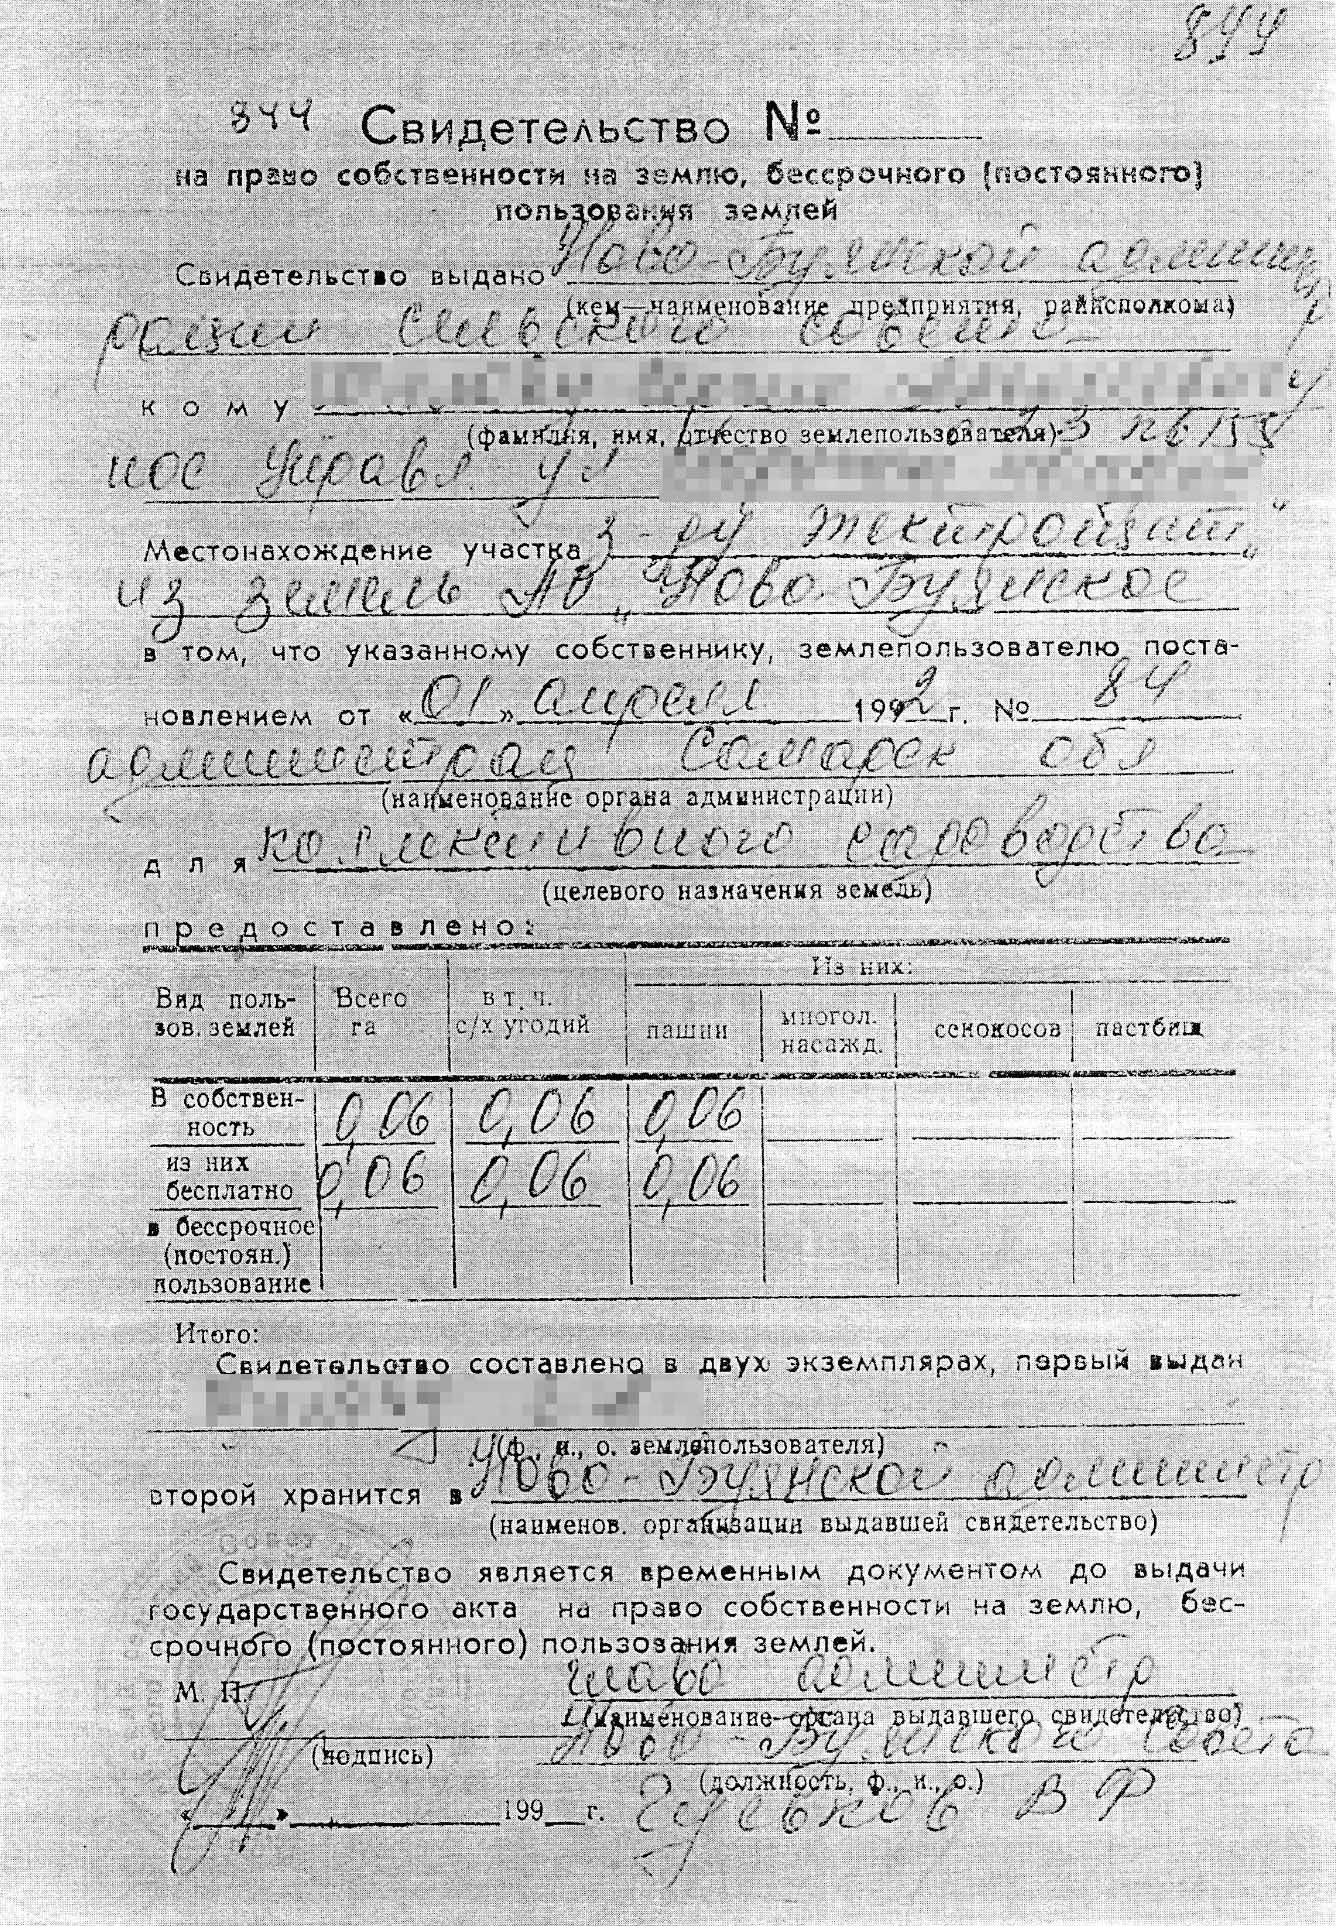 844
844 Свидетельство №
на право собственности на землю, бессрочного (постоянного)
пользования землей
Свидетельство выдано Ново-Буянской админист
(кем—наименование предприятия, райисполкома)
рации сельского совета
кому
(фамилия, имя, отчество землепользователя) 23 кв 155
пос Управл. ул
Местонахождение участка з-ду Электрощит"
из земель АО „Ново-Буянское
в том, что указанному собственнику, землепользователю поста-
новлением от «01» апреля 1992 г. № 84
администрац Самарск обл
(наименование органа администрации)
для коллективного садоводства
(целевого назначения земель)
предоставлено:
Из них:
Вид поль- Всего в т. ч.
зов. землей га с/х угодий пашни многол. насажд. сенокосов пастбищ
В собствен-
ность 0,06 0,06 0,06
из них
бесплатно 0,06 0,06 0,06
в бессрочное
(постоян.)
пользование
Итого:
Свидетельство составлено в двух экземплярах, первый выдан
(ф., и., о. землепользователя)
второй хранится в Ново-Буянской администр
(наименов. организации выдавшей свидетельство)
Свидетельство является временным документом до выдачи
государственного акта на право собственности на землю, бес-
срочного (постоянного) пользования землей.
М. П. глава администр
(наименование органа выдавшего свидетельство)
Ново-Буянского Совета
(подпись) (должность, ф., и., о.)
« » 199 г. В Ф